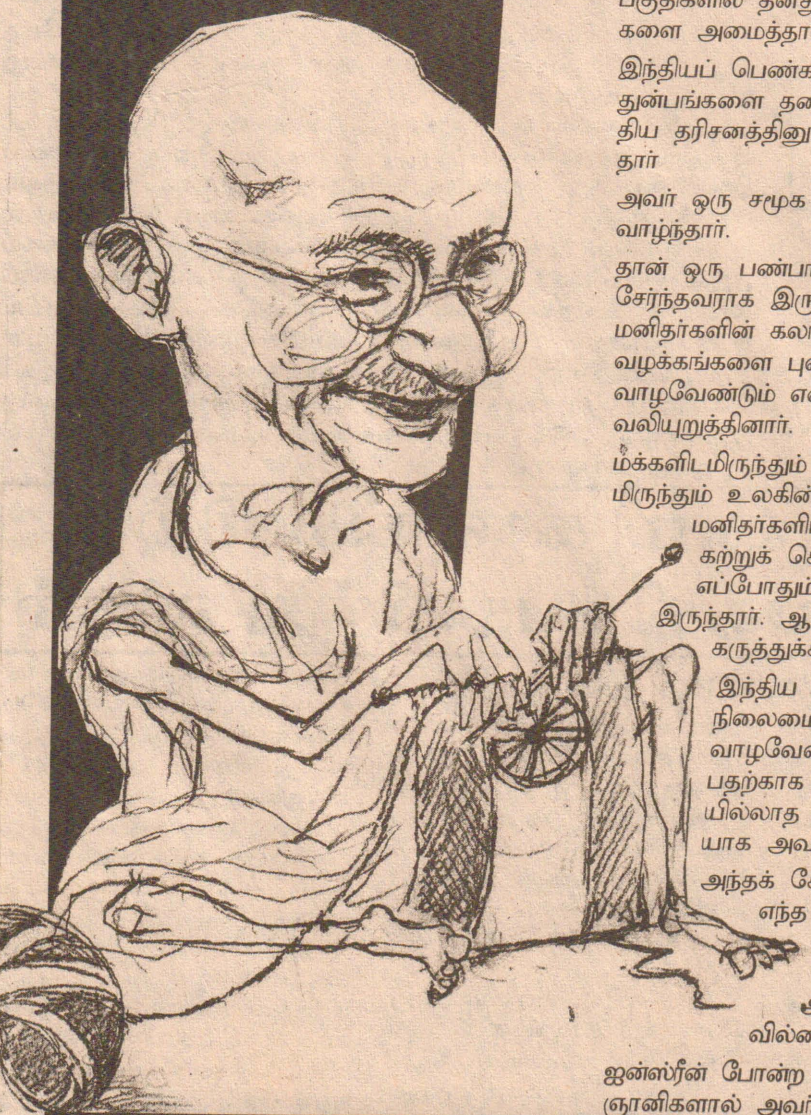 பகுதிகளில் தனது
களை அமைத்தா
இந்தியப் பெண்க
துன்பங்களை தன
திய தரிசனத்தினு
தார்
அவர் ஒரு சமூக
வாழ்ந்தார்.
தான் ஒரு பண்பா
சேர்ந்தவராக இரு
மனிதர்களின் கலா
வழக்கங்களை பு
வாழவேண்டும் எ
வலியுறுத்தினார்.
மக்களிடமிருந்தும்
மிருந்தும் உலகின்
மனிதர்களி
கற்றுக் செ
எப்போதும்
இருந்தார். ஆ
கருத்துக்க
இந்திய
நிலைமை
வாழவே
பதற்காக
யில்லாத
யாக அவ
அந்தக் கே
எந்த
வில்லை
ஐன்ஸ்ரீன் போன்ற
ஞானிகளால் அவ